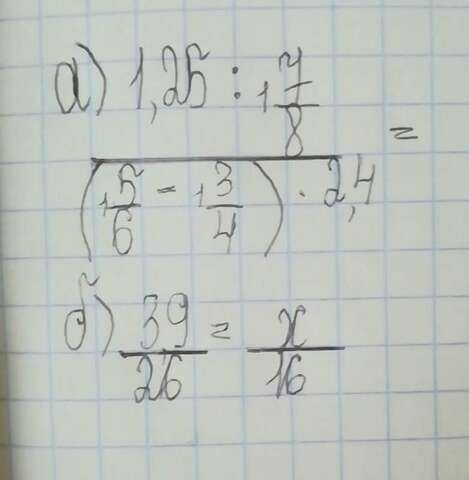 а) 1,25 : 1 7/8
(1 5/6 - 1 3/4) · 2,4 =
б) 39/26 = x/16